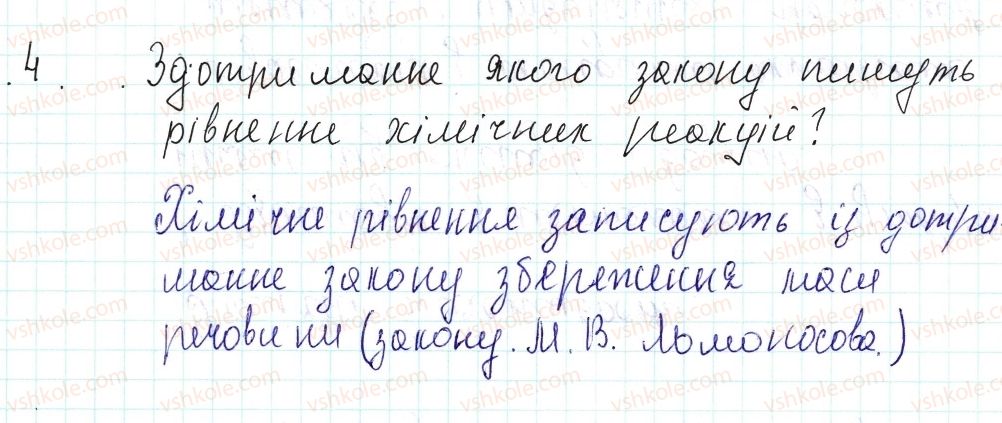 4. Здотриманне якого закону пишуть
рівненне хімічних реакцій?
Хімічне рівнення записують із дотри-
манне закону збереження маси
речовини (закону. М. В. Льмоносова.)